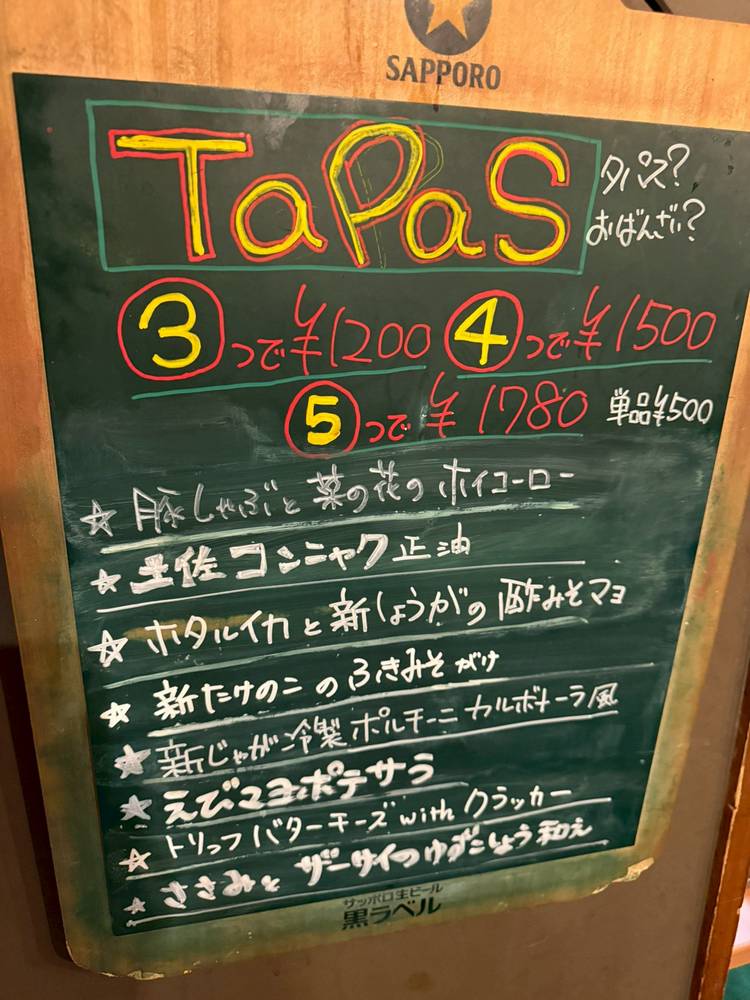 SAPPORO
TaPaS
タパス?
おばんざい?
3つで¥1200 4つで¥1500
5つで¥1780 単品¥500
☆豚しゃぶと菜の花のホイコーロー
☆土佐コンニャク正油
☆ホタルイカと新しょうがの酢みそマヨ
☆新たけのこのふきみそがけ
☆新じゃが冷製ポルチーニカルボナーラ風
☆えびマヨポテサラ
☆トリュフバターチーズwithクラッカー
☆ささみとザーサイのゆずこしょう和え
サッポロ生ビール
黒ラベル